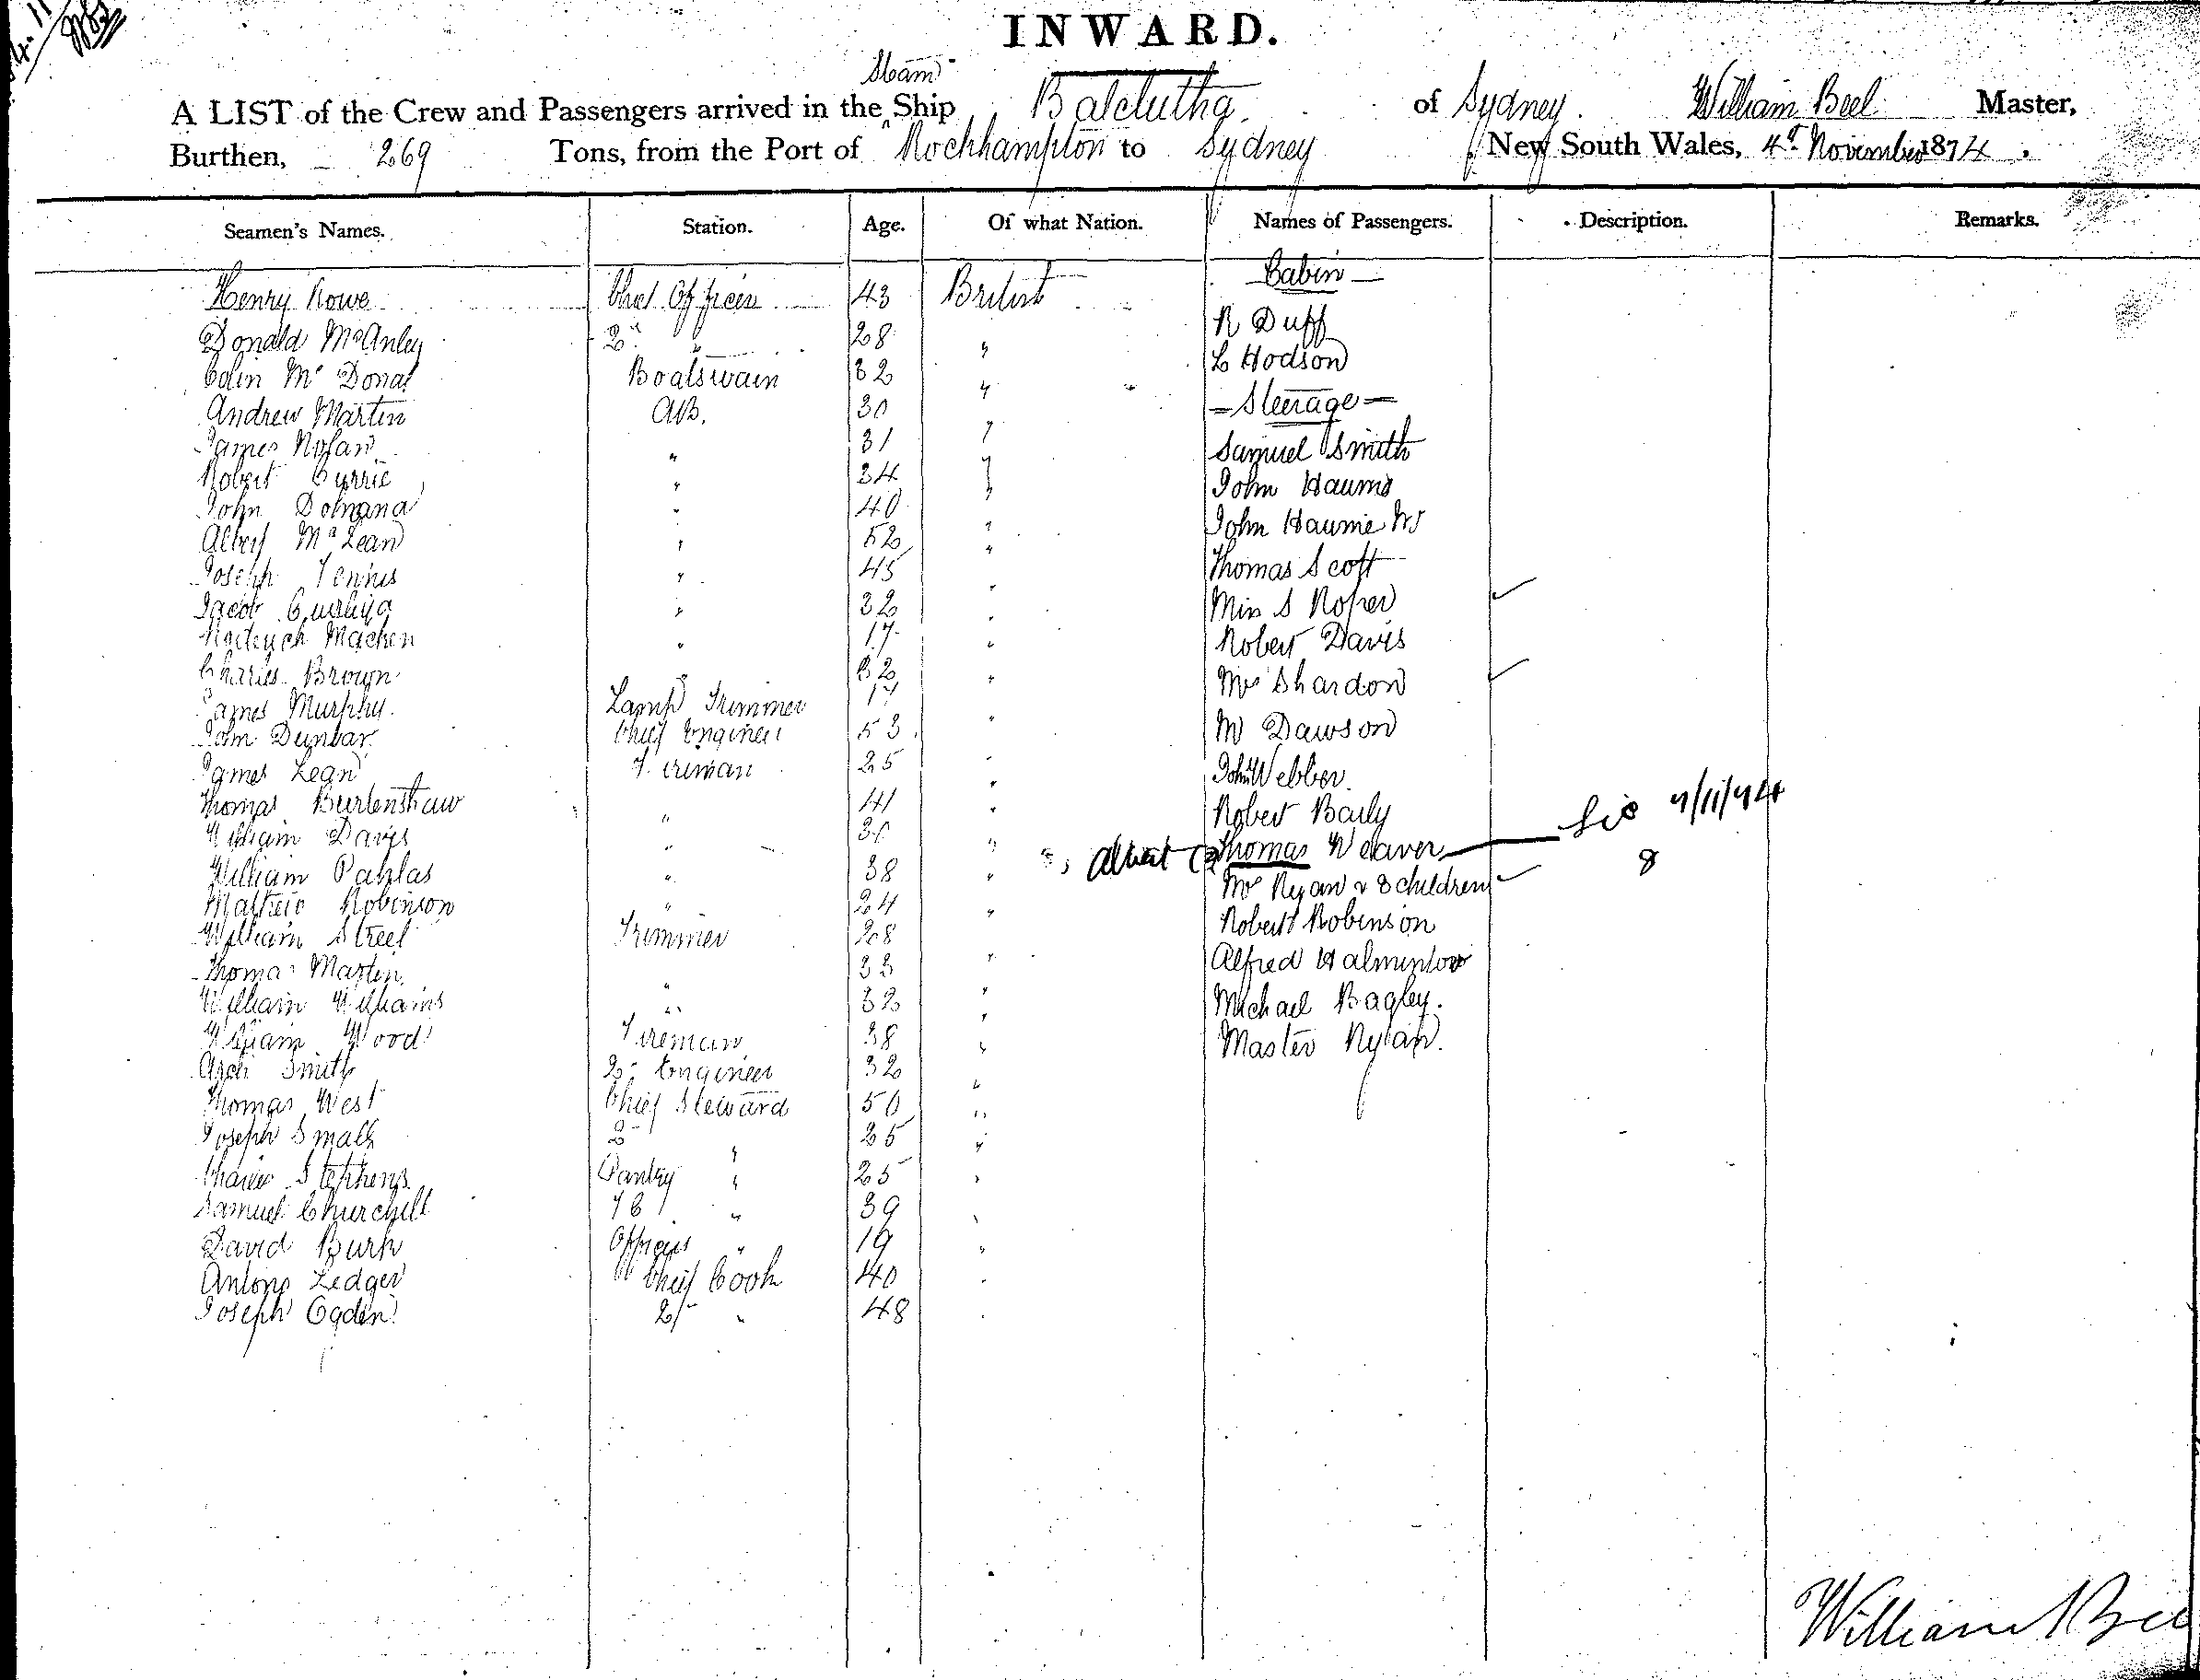 INWARD.
Steam
A LIST of the Crew and Passengers arrived in the Ship Balclutha. of Sydney. William Beel Master,
Burthen, 269 Tons, from the Port of Rockhampton to Sydney New South Wales, 4th November 1874.
Seamen's Names. Station. Age. Of what Nation. Names of Passengers. Description. Remarks.
Henry Rowe Chief Officer 43 British Cabin
Donald McAnley 2d " 28 " R Duff
Colin Mc Donal Boatswain 32 " L Hodson
Andrew Martin AB. 30 " Steerage
James Nolan " 31 " Samuel Smith
Robert Currie " 34 " John
John " 40 " John
Albert McLean " 52 " Thomas Scott
Joseph " 45 " Miss S Roper
Jacob " 32 " Robert Davis
Machen " 17 " Mrs Shardon
Charles Brown " 32 " M Dawson
James Murphy. Lamp Trimmer 17 " John Webber.
John Dunbar Chief Engineer 53 " Robert Baily
James Lean Fireman 25 " Albert Thomas Weaver 9/11/94
Thomas Burtenshaw " 41 " Mrs Ryan & 8 children 8
William Davis " 30 " Robert Robinson
William " 38 " Alfred
Robinson " 24 " Michael Bagley.
William Street Trimmer 28 " Master Ryan.
Thomas Martin. " 33 "
William Williams " 32 "
William Wood Fireman 38 "
Arch Smith 2d Engineer 32 "
Thomas West Chief Steward 50 "
Joseph Small 2d " 25 "
Charles Stephens Pantry " 25 "
Samuel Churchill " 39 "
David Burk Officers " 19 "
Antony Ledger Chief Cook 40 "
Joseph Ogden 2/ " 48 "
William Beel